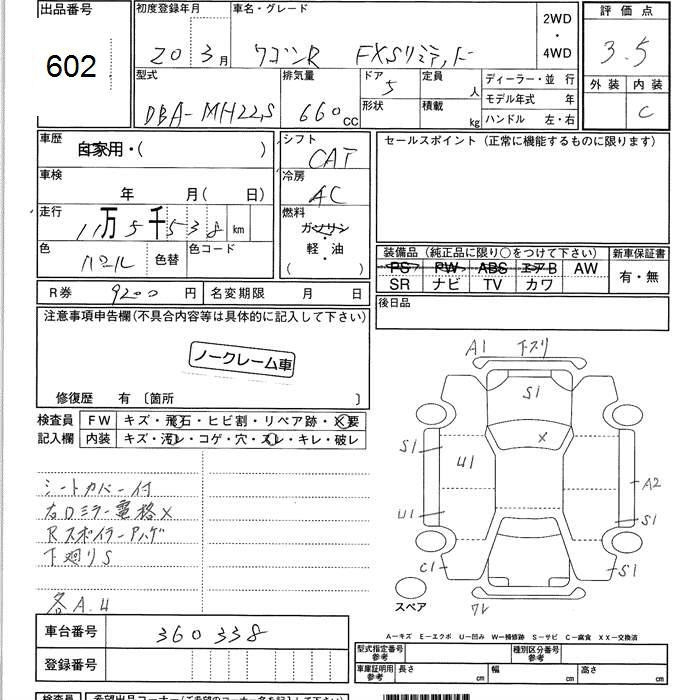 出品番号 初度登録年月 車名・グレード 2WD 評価点
602 20 3月 ワゴンR FXSリミテッド ・ 3.5
4WD
型式 排気量 ドア 定員 ディーラー・並 行 外装 内装
DBA-MH22S 660cc 5 人 モデル年式 年 C
形状 積載 kg ハンドル 左・右
車歴 自家用・( ) シフト CAT セールスポイント(正常に機能するものに限ります)
車検 年 月( 日) 冷房 AC
走行 11万5千538km 燃料 ガソリン
・
色 パール 色替 色コード 軽・油 装備品(純正品に限り○をつけて下さい) 新車保証書
( ) PS PW ABS エアB AW 有・無
SR ナビ TV カワ
R券 9200円 名変期限 月 日 後日品
注意事項申告欄(不具合内容等は具体的に記入して下さい)
ノークレーム車
修復歴 有 〔箇所 〕
検査員 FW キズ・飛石・ヒビ割・リペア跡・X要
記入欄 内装 キズ・汚レ・コゲ・穴・スレ・キレ・破レ
シートカバー付
右Dミラー電格×
Rスポイラーアハゲ
下廻りS
各A.U
A1 下スリ
S1
S1 U1 ×
A2
U1 S1
C1 S1
スペア ワレ
車台番号 360338
登録番号
A-キズ E-エクボ U-凹み W-補修跡 S-サビ C-腐食 XX-交換済
型式指定番号 参考 種別区分番号 参考
車庫証明用 参考 長さ cm 幅 cm 高さ cm
検査員 希望出品コーナー(ご希望のコーナー名を記入して下さい)